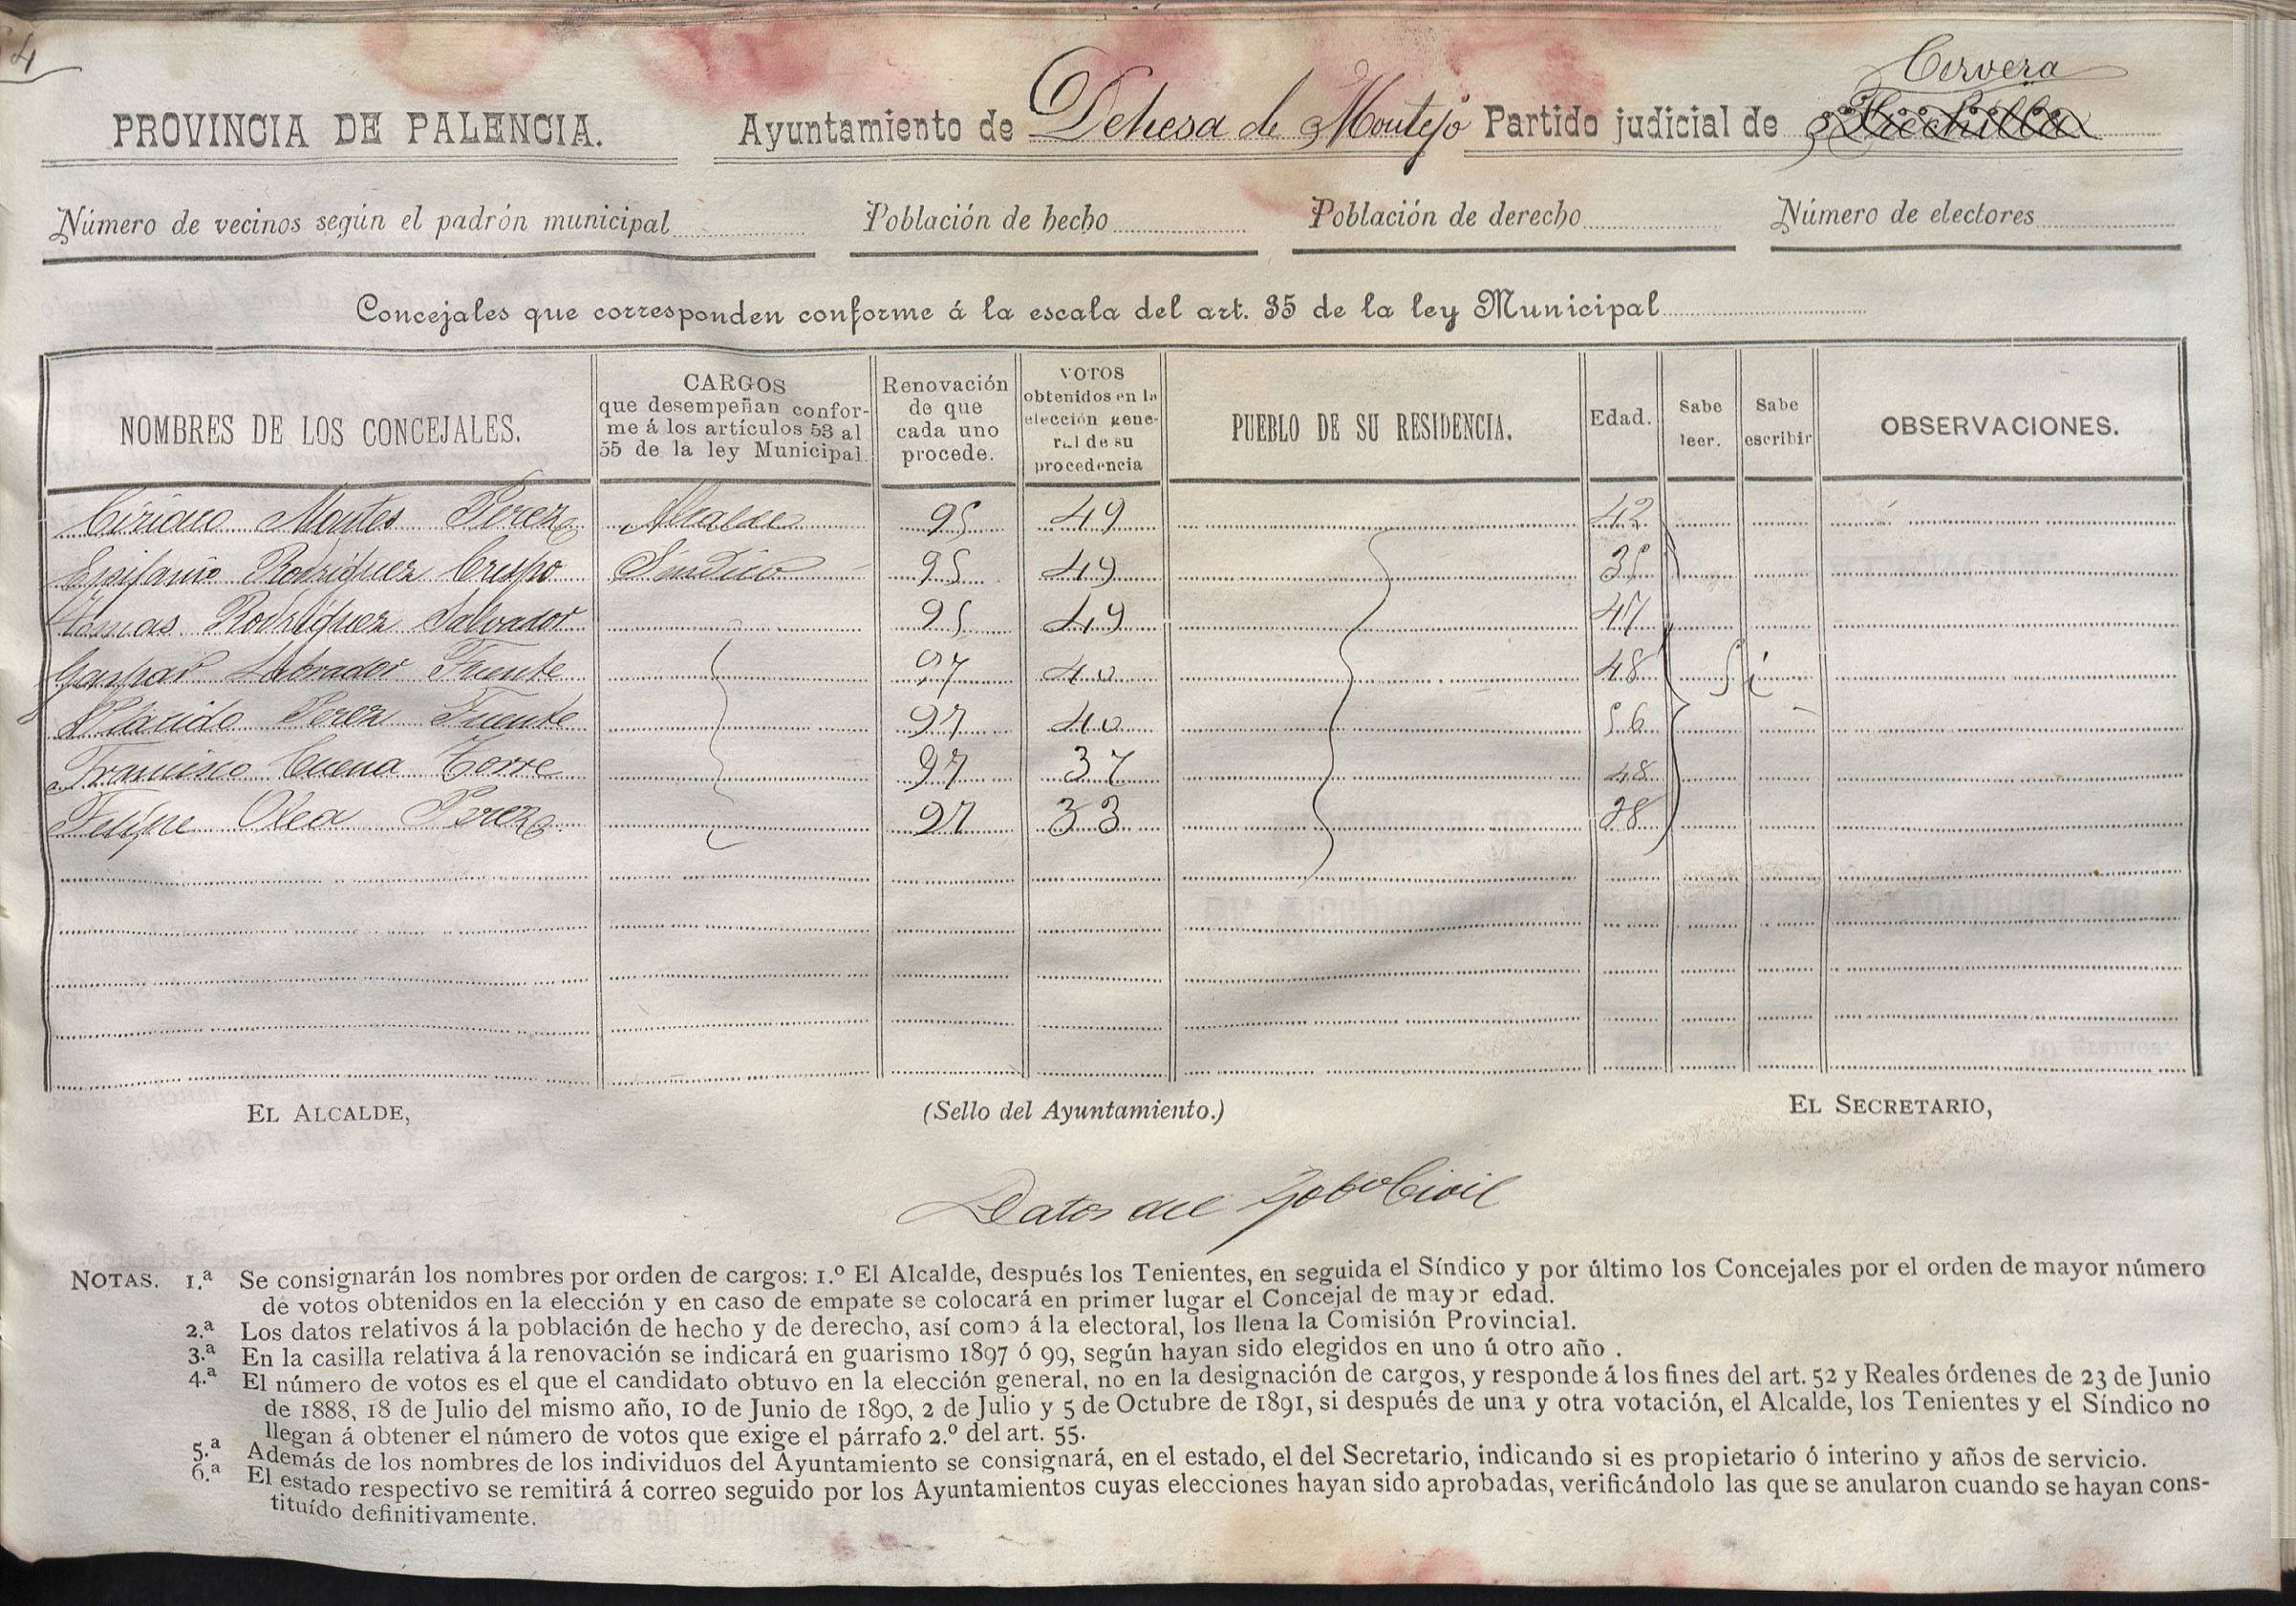 4
Cervera
PROVINCIA DE PALENCIA. Ayuntamiento de Dehesa de Montejo Partido judicial de Frechilla
Número de vecinos según el padrón municipal Población de hecho Población de derecho Número de electores
Concejales que corresponden conforme á la escala del art. 35 de la ley Municipal
NOMBRES DE LOS CONCEJALES. CARGOS que desempeñan conforme á los artículos 53 al 55 de la ley Municipal. Renovación de que cada uno procede. VOTOS obtenidos en la elección general de su procedencia PUEBLO DE SU RESIDENCIA. Edad. Sabe leer. Sabe escribir OBSERVACIONES.
Ciriaco Montes Perez Alcalde 95 49 42
Epifanio Rodriguez Crespo Sindico 95 49 35
Tomas Rodriguez Salvador 95 49 47
Gaspar Labrador Fuente 97 40 48 Si
Placido Perez Fuente 97 40 56
Francisco Cuena Torre 97 37 48
Felipe Olea Perez 97 33 38
EL ALCALDE, (Sello del Ayuntamiento.) EL SECRETARIO,
Datos del Gobº Civil
NOTAS. 1.ª Se consignarán los nombres por orden de cargos: 1.º El Alcalde, después los Tenientes, en seguida el Síndico y por último los Concejales por el orden de mayor número
de votos obtenidos en la elección y en caso de empate se colocará en primer lugar el Concejal de mayor edad.
2.ª Los datos relativos á la población de hecho y de derecho, así como á la electoral, los llena la Comisión Provincial.
3.ª En la casilla relativa á la renovación se indicará en guarismo 1897 ó 99, según hayan sido elegidos en uno ú otro año .
4.ª El número de votos es el que el candidato obtuvo en la elección general, no en la designación de cargos, y responde á los fines del art. 52 y Reales órdenes de 23 de Junio
de 1888, 18 de Julio del mismo año, 10 de Junio de 1890, 2 de Julio y 5 de Octubre de 1891, si después de una y otra votación, el Alcalde, los Tenientes y el Síndico no
llegan á obtener el número de votos que exige el párrafo 2.º del art. 55.
5.ª Además de los nombres de los individuos del Ayuntamiento se consignará, en el estado, el del Secretario, indicando si es propietario ó interino y años de servicio.
6.ª El estado respectivo se remitirá á correo seguido por los Ayuntamientos cuyas elecciones hayan sido aprobadas, verificándolo las que se anularon cuando se hayan cons-
tituído definitivamente.